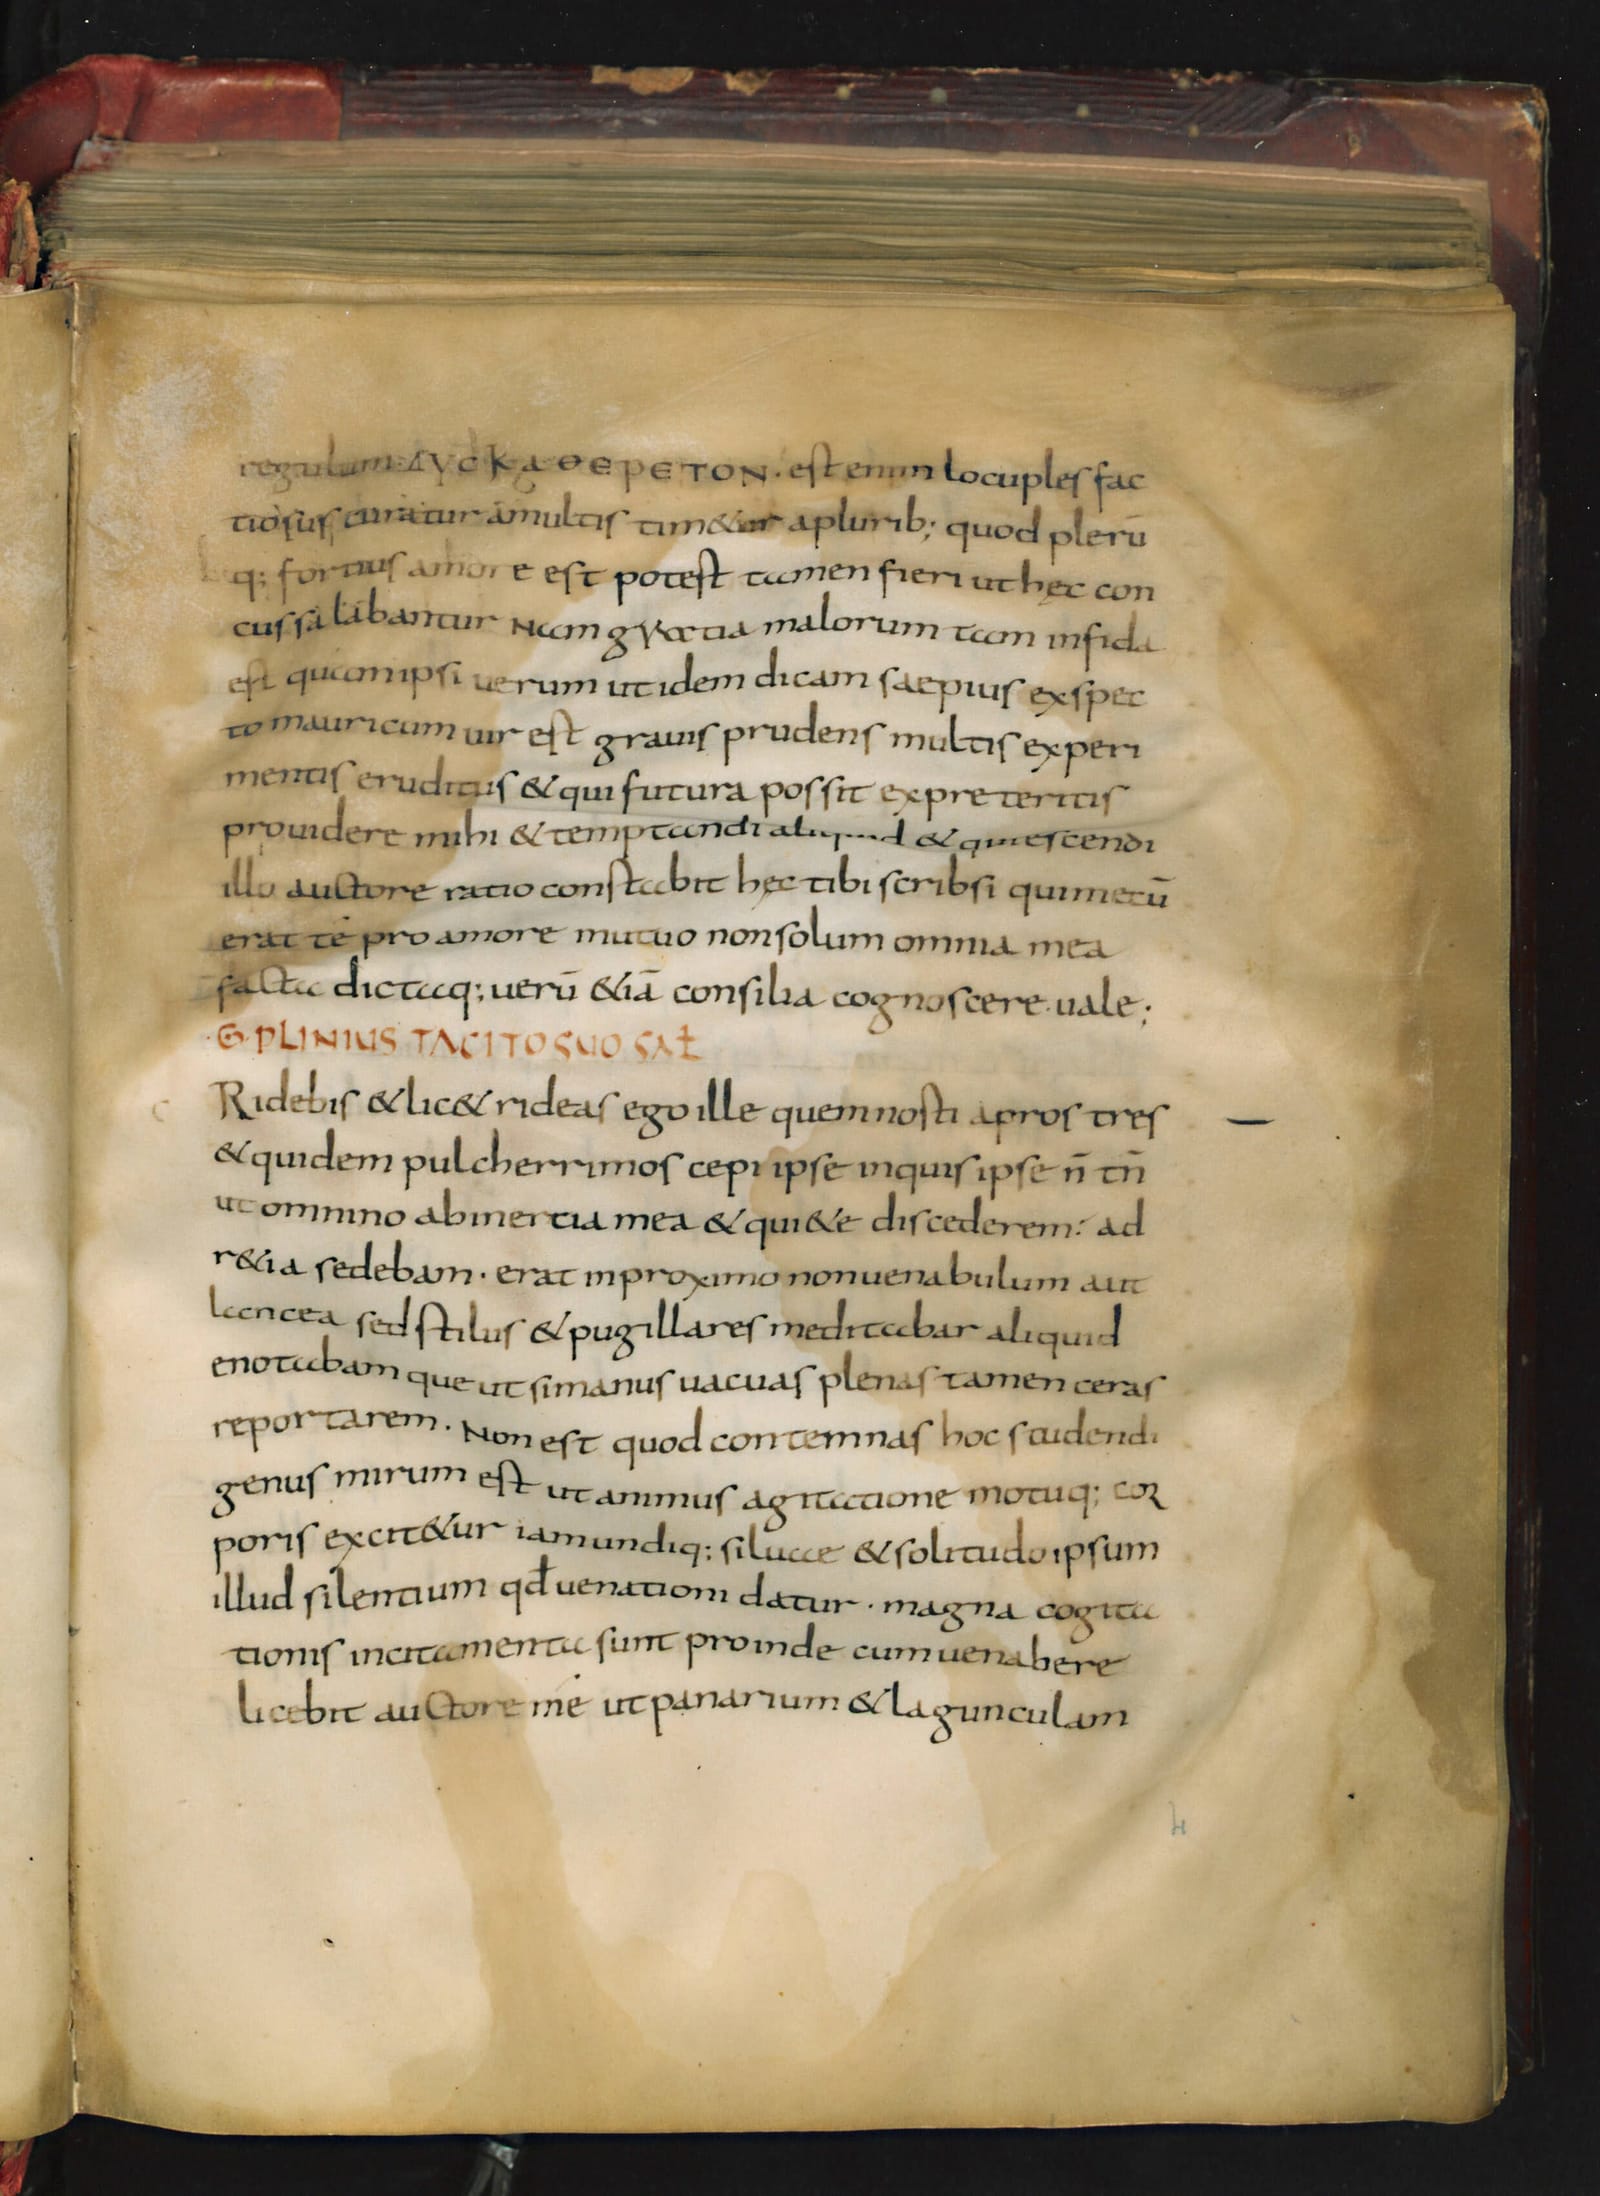 regulum ΔΥCΚΑΘΕΡΕΤΟΝ · est enim locuples fac
tiosus curatur amultis tim&ur aplurib; quod plerū
q; fortius amore est potest tamen fieri ut hęc con
cussa labantur Nam gratia malorum tam infida
est quam ipsi uerum ut idem dicam saepius exspec
to mauricum uir est grauis prudens multis experi
mentis eruditus & qui futura possit expreteritis
prouidere mihi & temptandi aliquid & quiescendi
illo auctore ratio constabit hęc tibi scribsi quimetū
erat te pro amore mutuo nonsolum omnia mea
facta dictaq; uerū &iā consilia cognoscere. uale;
G·PLINIUS TACITO SUO SAŁ
Ridebis & lic& rideas ego ille quem nosti apros tres
& quidem pulcherrimos cepi ipse inquis ipse n̄ tn̄
ut omnino abinertia mea & qui&e discederem: ad
r&ia sedebam · erat inproximo nonuenabulum aut
lancea sed stilus & pugillares meditabar aliquid
enotabam que ut simanus uacuas plenas tamen ceras
reportarem. Non est quod contemnas hoc studendi
genus mirum est ut animus agitatione motuq; cor
poris excit&ur iam undiq; siluae & solitudo ipsum
illud silentium qđ uenationi datur · magna cogita
tionis incitamenta sunt proinde cum uenabere
licebit auctore me ut panarium & lagunculam